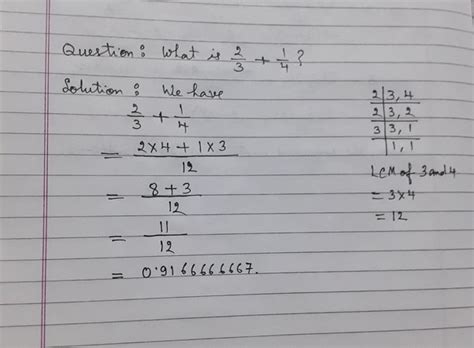 Question: What is 2/3 + 1/4?
Solution: We have
2/3 + 1/4
= (2×4 + 1×3)/12
= (8+3)/12
= 11/12
= 0.9166666667.
2 | 3, 4
2 | 3, 2
3 | 3, 1
| 1, 1
LCM of 3 and 4
= 3×4
= 12